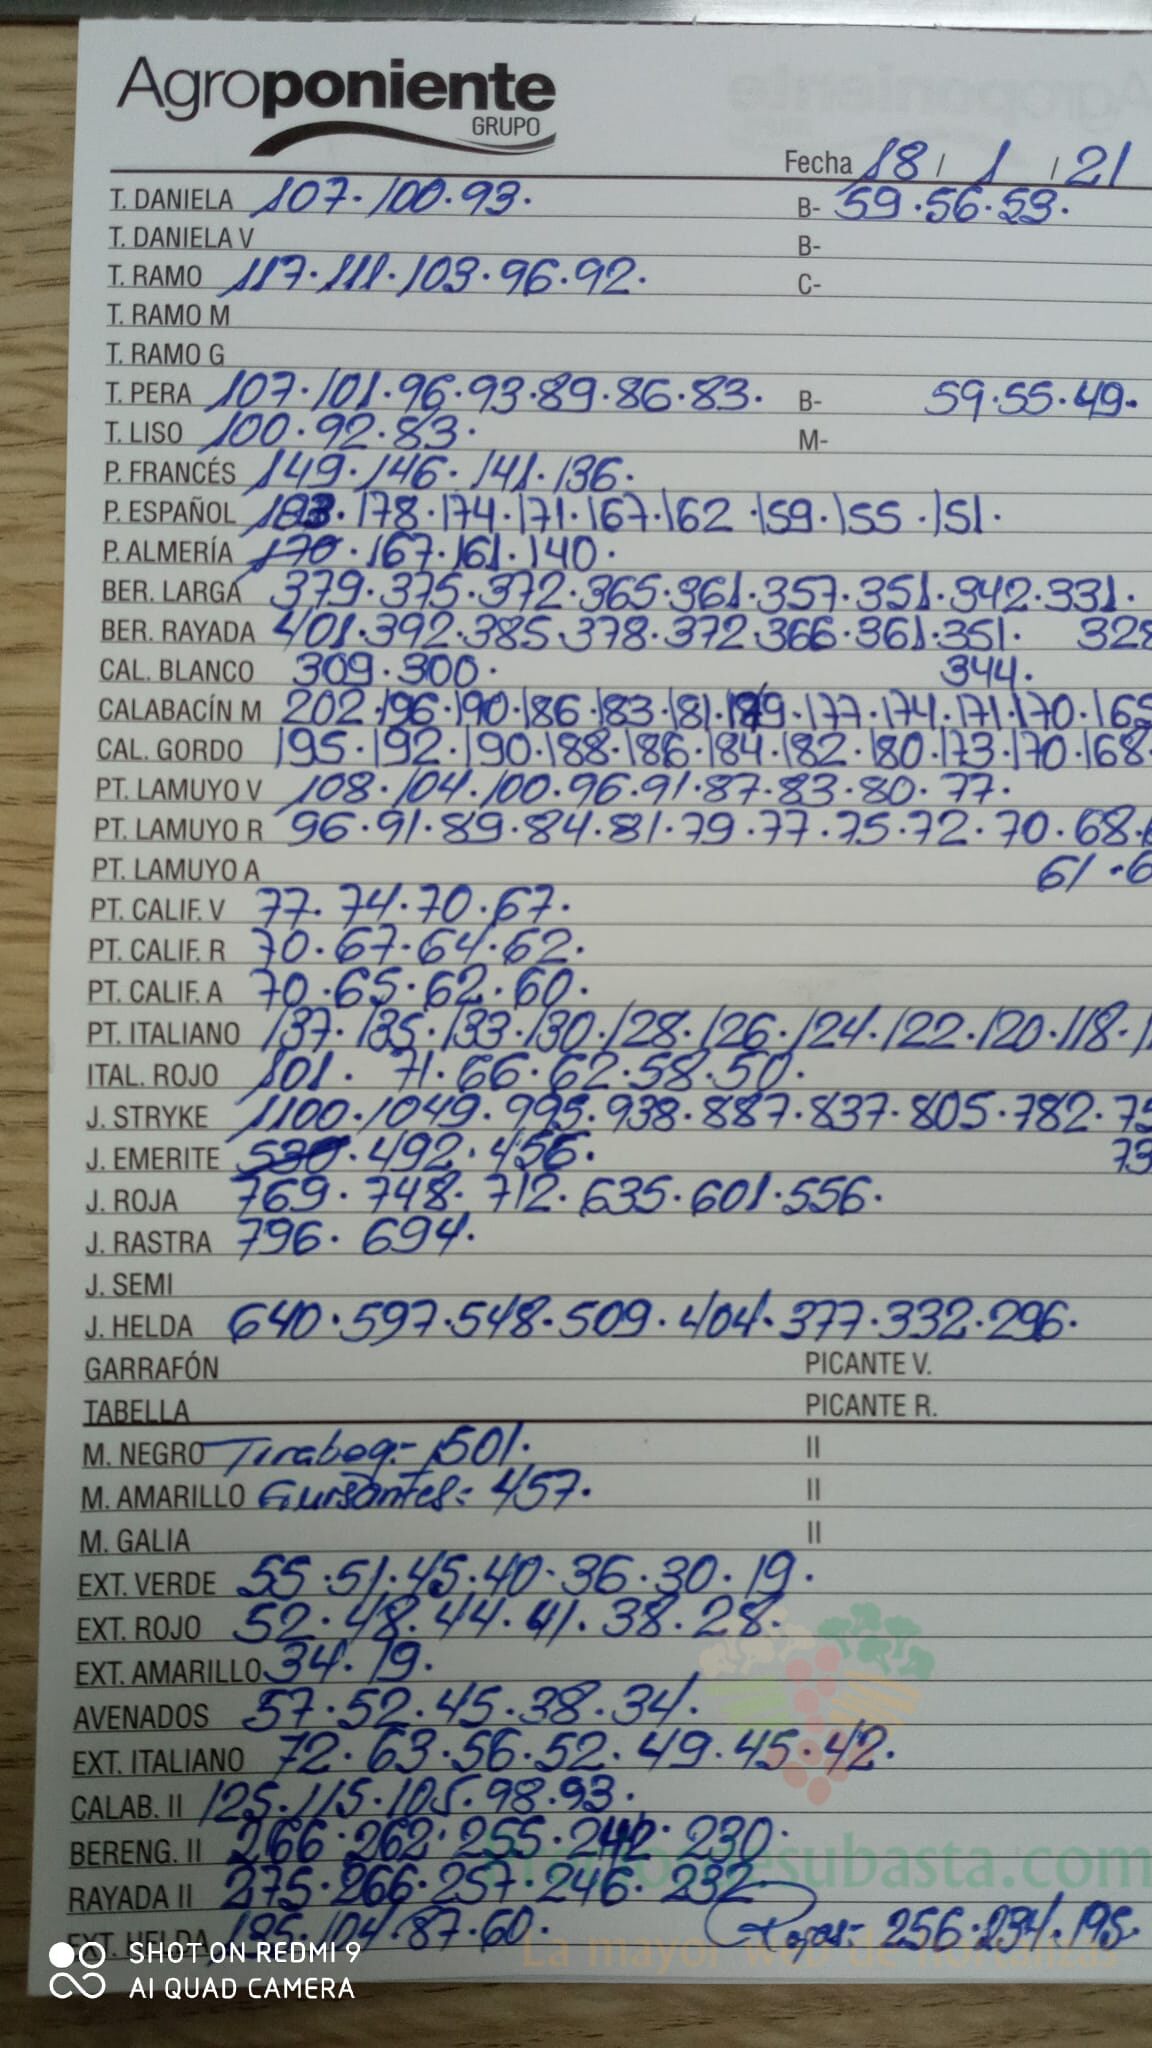 Agroponiente
GRUPO
Fecha 18 / 1 / 21
T. DANIELA 107. 100. 93. B- 59.56.53.
T. DANIELA V B-
T. RAMO 117.111.103.96.92. C-
T. RAMO M
T. RAMO G
T. PERA 107.101.96.93.89.86.83. B- 59.55.49.
T. LISO 100.92.83. M-
P. FRANCÉS 149.146.141.136.
P. ESPAÑOL 183.178.174.171.167.162.159.155.151.
P. ALMERÍA 170.167.161.140.
BER. LARGA 379.375.372.365.361.357.351.342.331.
BER. RAYADA 401.392.385.378.372.366.361.351. 328
CAL. BLANCO 309.300. 344.
CALABACÍN M 202.196.190.186.183.181.179.177.174.171.170.165
CAL. GORDO 195.192.190.188.186.184.182.180.173.170.168.
PT. LAMUYO V 108.104.100.96.91.87.83.80.77.
PT. LAMUYO R 96.91.89.84.81.79.77.75.72.70.68.
PT. LAMUYO A 61.6
PT. CALIF. V 77.74.70.67.
PT. CALIF. R 70.67.64.62.
PT. CALIF. A 70.65.62.60.
PT. ITALIANO 137.135.133.130.128.126.124.122.120.118.
ITAL. ROJO 101. 71.66.62.58.50.
J. STRYKE 1100.1049.995.938.887.837.805.782.75
J. EMERITE 530.492.456. 73
J. ROJA 769.748.712.635.601.556.
J. RASTRA 796.694.
J. SEMI
J. HELDA 640.597.548.509.404.377.332.296.
GARRAFÓN PICANTE V.
TABELLA PICANTE R.
M. NEGRO Tirabeq:- 501. II
M. AMARILLO Guisantes:- 457. II
M. GALIA II
EXT. VERDE 55.51.45.40.36.30.19.
EXT. ROJO 52.48.44.41.38.28.
EXT. AMARILLO 34.19.
AVENADOS 57.52.45.38.34.
EXT. ITALIANO 72.63.56.52.49.45.42.
CALAB. II 125.115.105.98.93.
BERENG. II 266.262.255.242.230.
RAYADA II 275.266.257.246.232.
EXT. HELDA 185.104.87.60. Rojas:- 256.234.195.
esubasta.com
La mayor web de hortalizas
SHOT ON REDMI 9
AI QUAD CAMERA